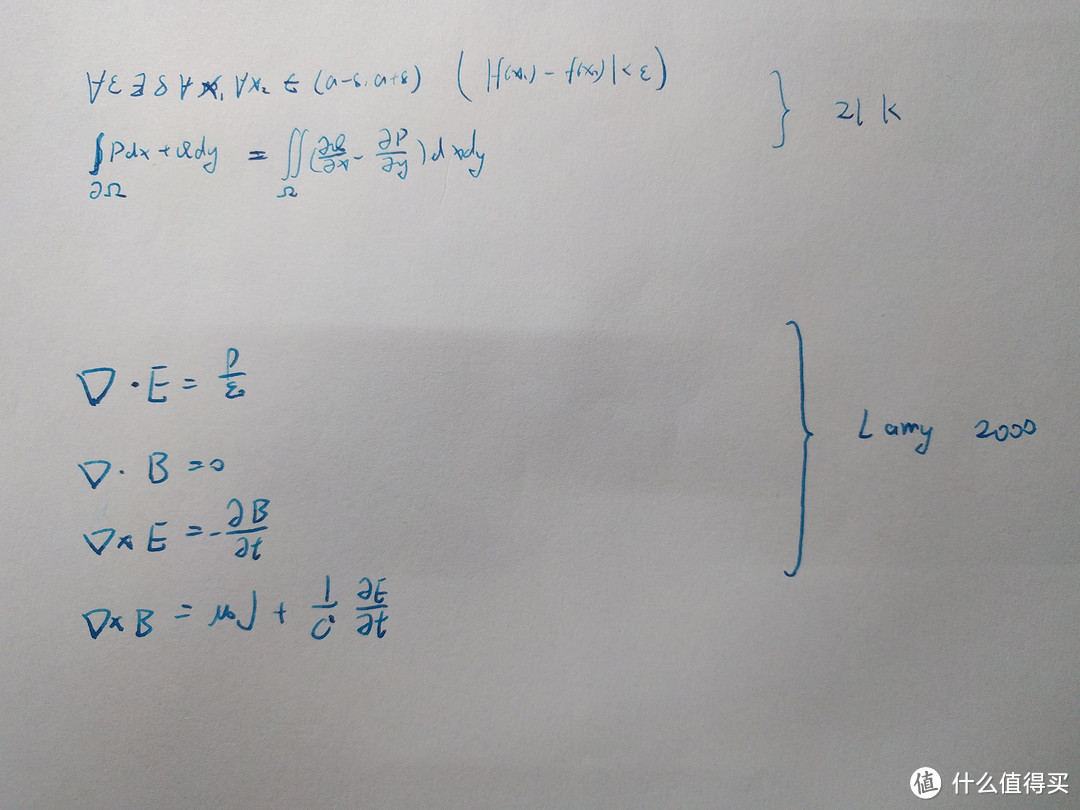 ∀ε ∃δ ∀x₁ ∀x₂ ∈ (a-δ, a+δ) ( |f(x₁) - f(x₂)| < ε )
∫_{∂Ω} Pdx + Qdy = ∬_Ω (∂Q/∂x - ∂P/∂y) dxdy
21 k
∇ · E = ρ/ε₀
∇ · B = 0
∇ × E = - ∂B/∂t
∇ × B = μ₀J + 1/c² ∂E/∂t
Lamy 2000
值 什么值得买